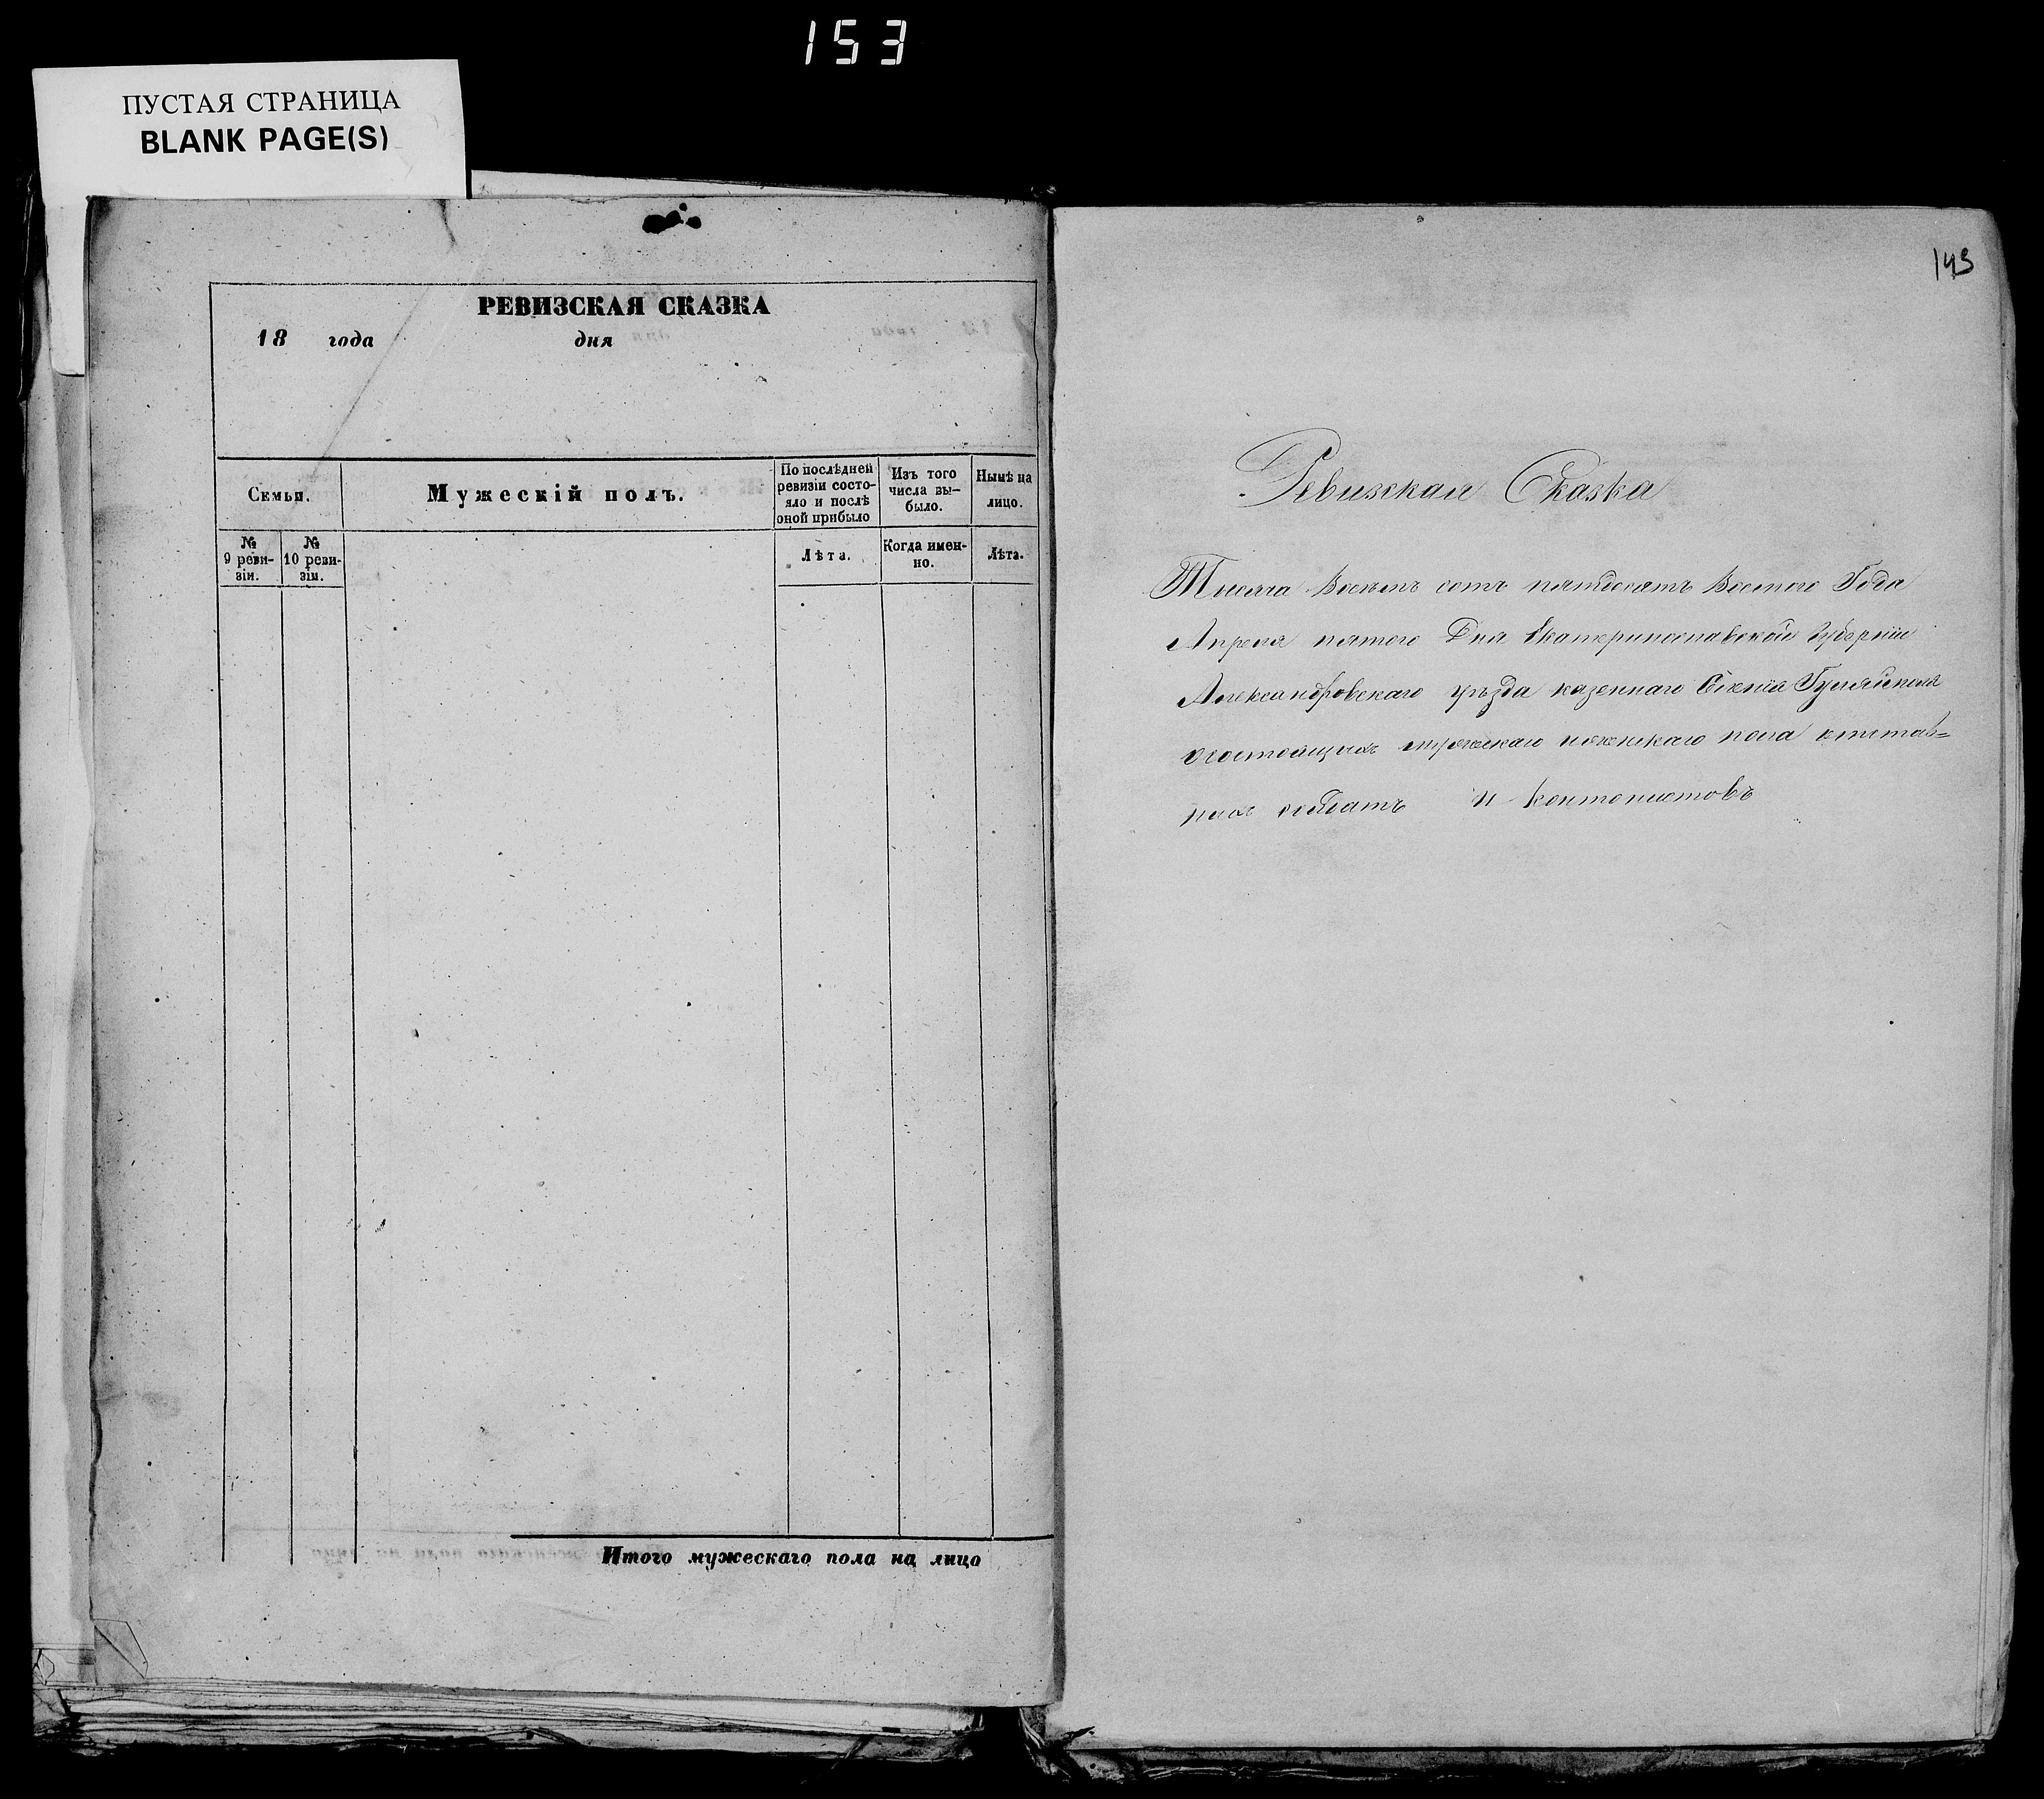 153
ПУСТАЯ СТРАНИЦА
BLANK PAGE(S)
РЕВИЗСКАЯ СКАЗКА
18 года дня
Семьи.
Мужескій полъ.
По послѣдней
ревизіи состо-
яло и послѣ
оной прибыло
Изъ того
числа вы-
было.
Нынѣ на
лицо.
№
9 реви-
зіи.
№
10 реви-
зіи.
Лѣта.
Когда имен-
но.
Лѣта.
Итого мужескаго пола на лицо
143
Ревизская Сказка
Тысяча Восемь сотъ пятдесятъ Восмого Года
Апреля пятого Дня Екатеринославской Губерніи
Александровскаго уѣзда казеннаго Селенія Гуляйполя
осостоящихъ мужескаго иженскаго пола отстав=
ныхъ солдатъ и кантонистовъ